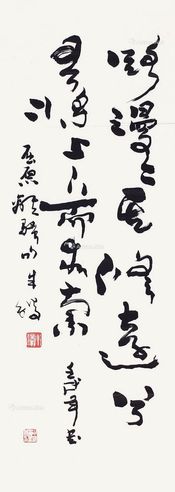 路漫々其修遠兮
吾將上下而求索
屈原離騷句